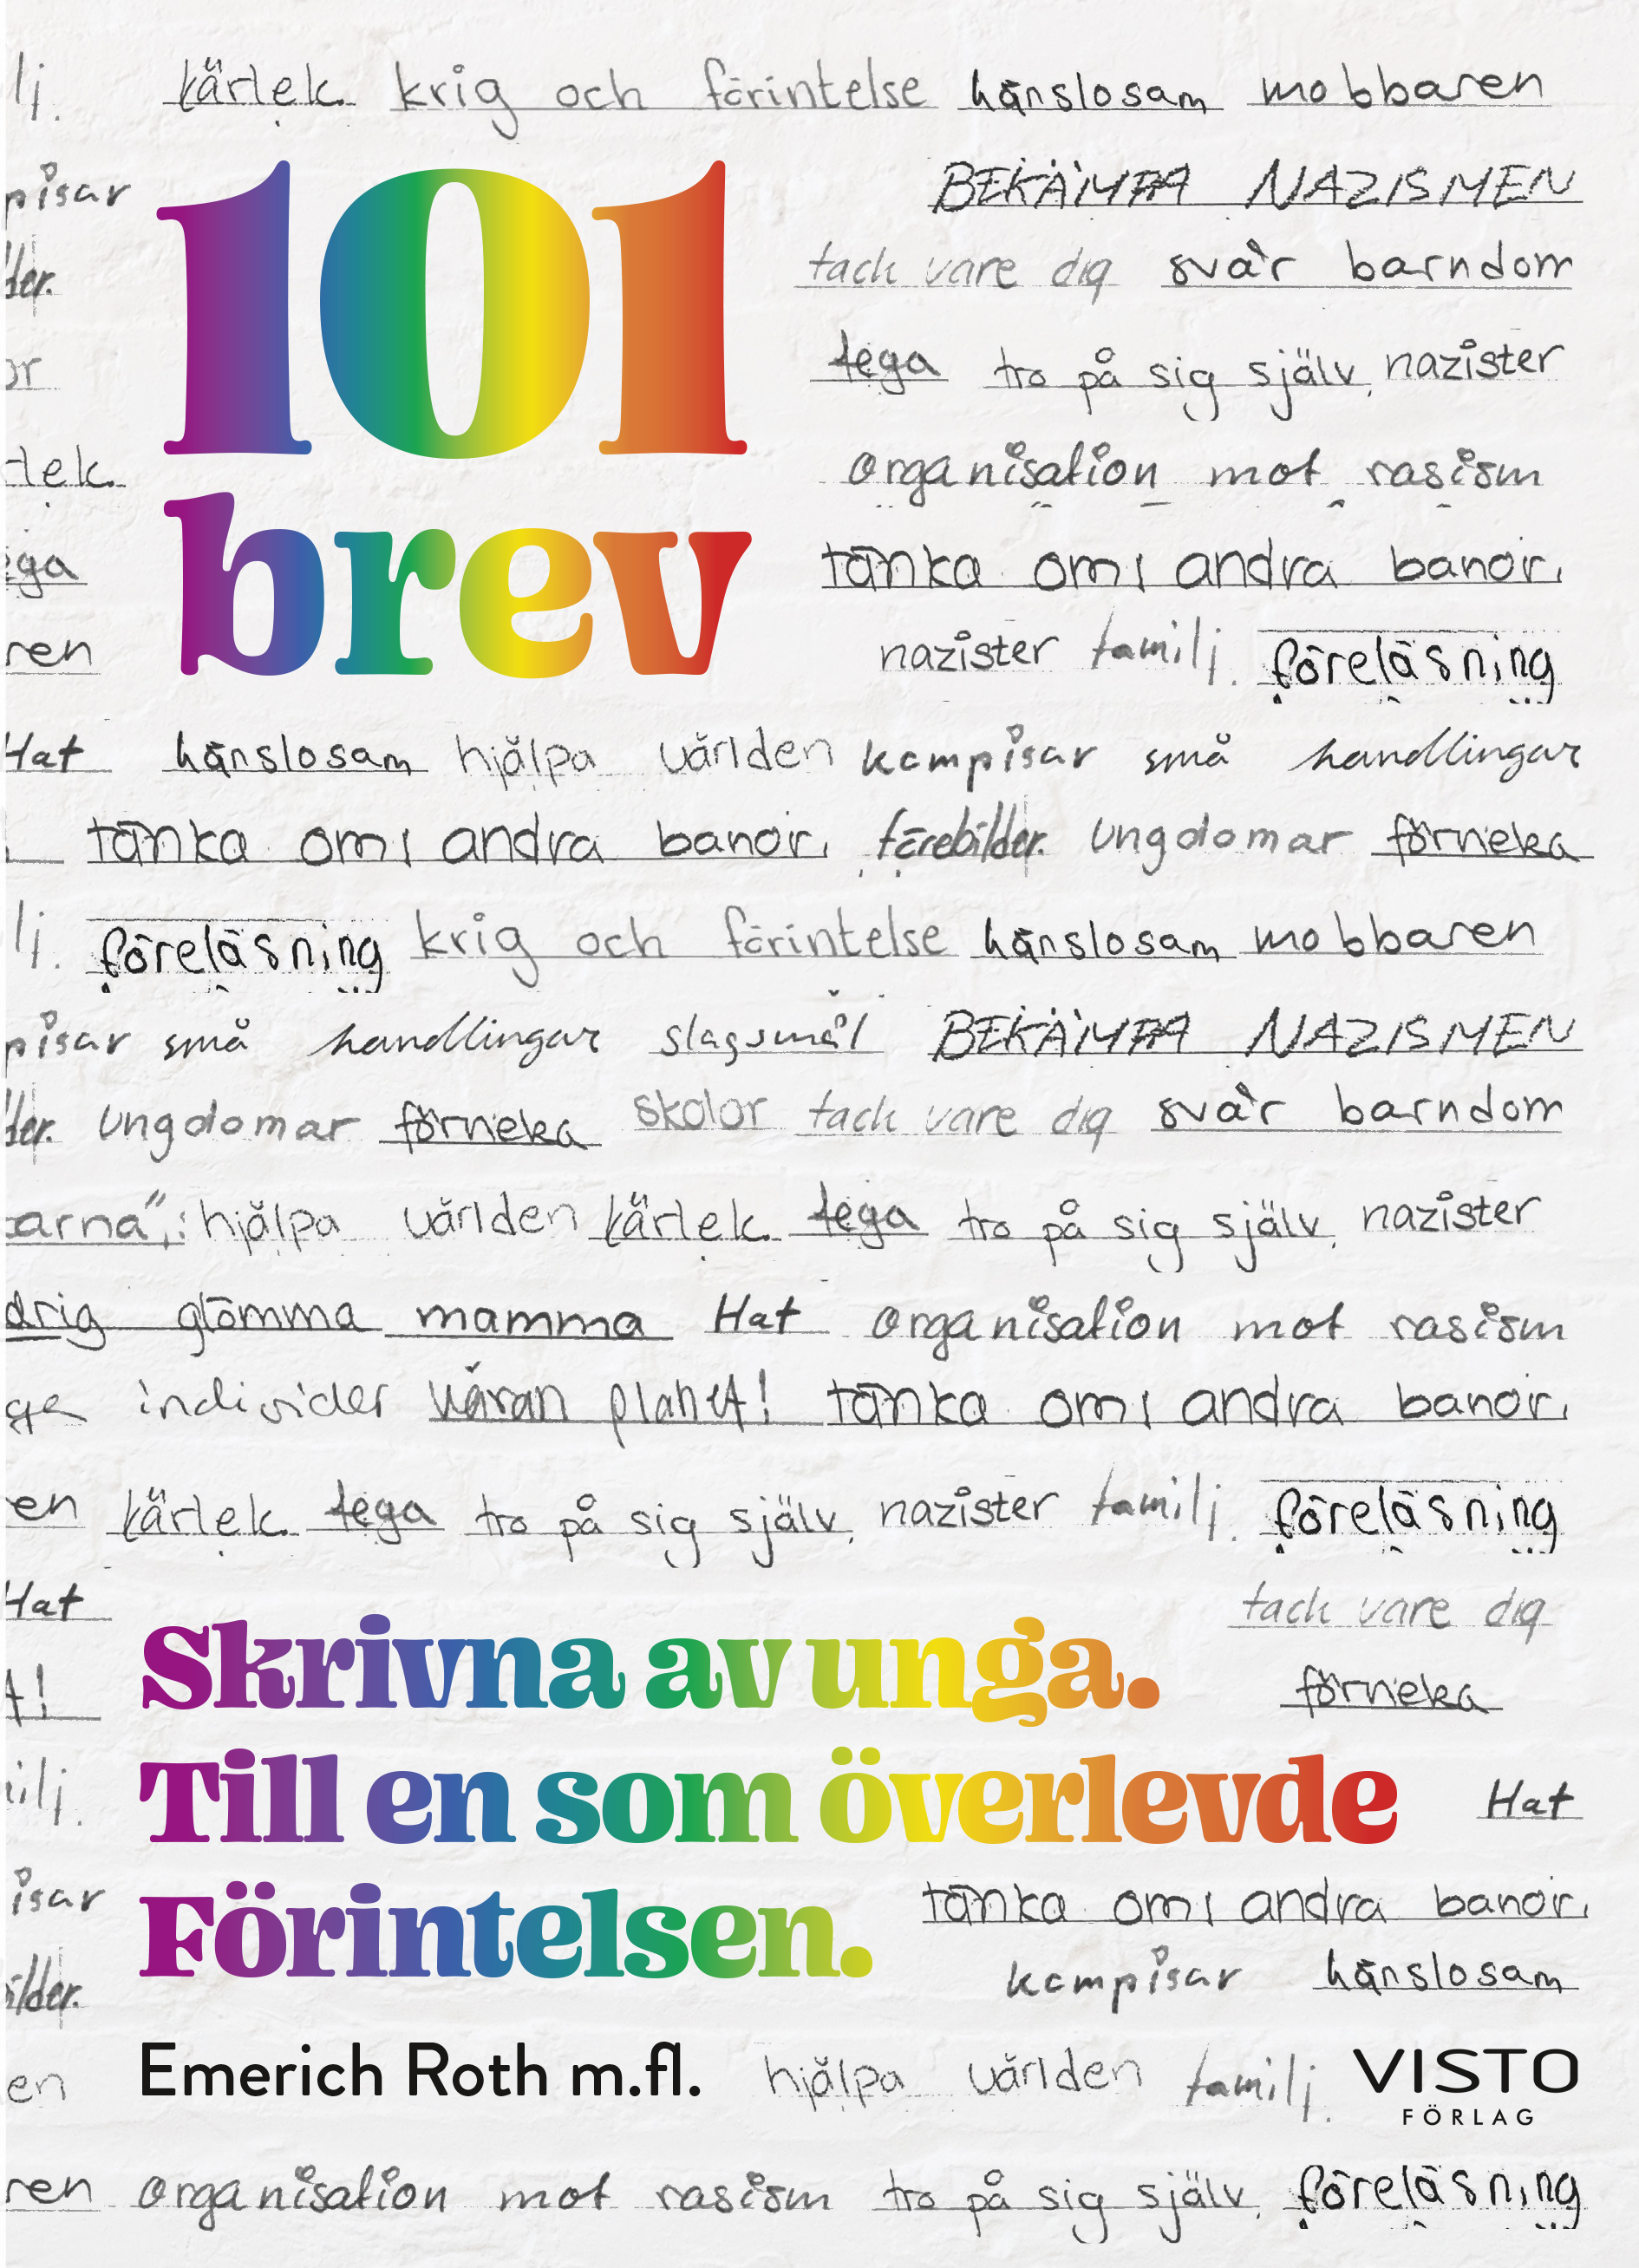 lj. kärlek. krig och förintelse känslosam mobbaren
pisar BEKÄMPA NAZISMEN
101
lder. tack vare dig svår barndom
or tega tro på sig själv, nazister
rlek. organisation mot rasism
brev
ega tänka om i andra banor,
ren nazister familj. föreläsning
Hat känslosam hjälpa världen kompisar små handlingar
tänka om i andra banor, förebilder. Ungdomar förneka
lj. föreläsning krig och förintelse känslosam mobbaren
pisar små handlingar slagsmål BEKÄMPA NAZISMEN
lder. Ungdomar förneka skolor tack vare dig svår barndom
karna", hjälpa världen kärlek. tega tro på sig själv, nazister
drig glömma mamma Hat organisation mot rasism
ga individer våran planet! tänka om i andra banor,
en kärlek. tega tro på sig själv, nazister familj. föreläsning
Hat tack vare dig
Skrivna av unga.
t! förneka
Till en som överlevde
ilj. Hat
Förintelsen.
isar tänka om i andra banor,
ilder. kompisar känslosam
Emerich Roth m.fl.
en hjälpa världen familj.
VISTO
FÖRLAG
ren organisation mot rasism tro på sig själv, föreläsning